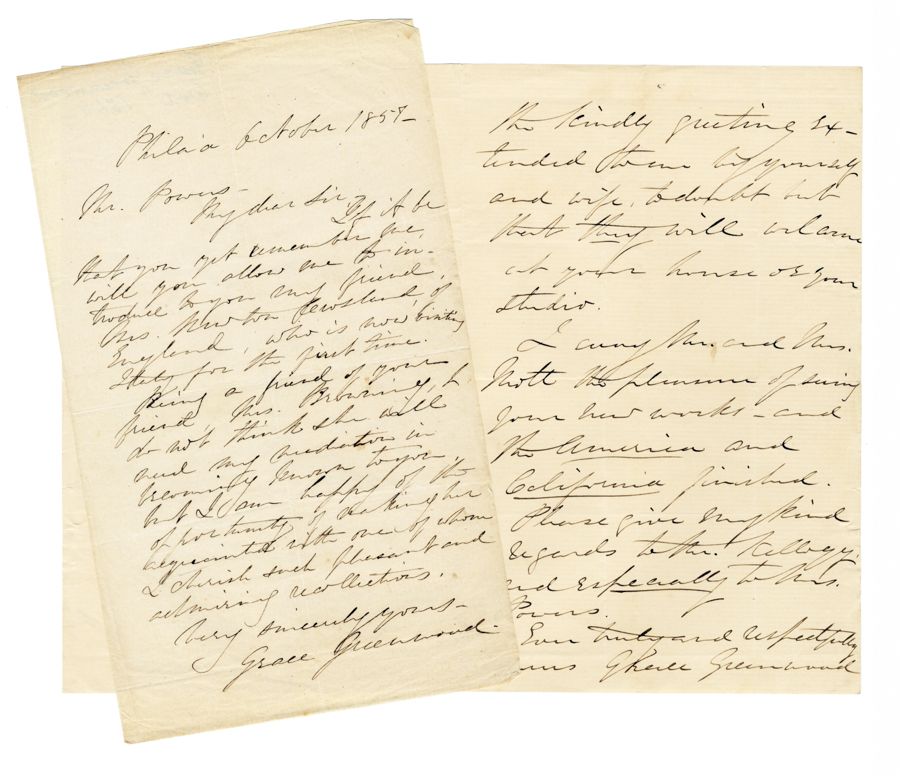 Phila'a October 1857-
Mr. Powers-
My dear Sir, If it be
that you yet remember me,
will you allow me to in-
troduce to you my friend,
Mrs. Newton Crosland, of
England, who is now visiting
Italy for the first time.
Being a friend of your
friend, Mrs. Browning, I
do not think she will
need my mediation in
becoming known to you,
but I am happy of the
opportunity of making her
acquainted with one of whom
I cherish such pleasant and
admiring recollections.
Very sincerely yours-
Grace Greenwood-
the kindly greeting ex-
tended to me by yourself
and wife, to doubt but
that they will welcome
at your house or your
studio.
I envy Mr. and Mrs.
Mott the pleasure of seeing
your new works - and
the America and
California finished.
Please give my kind
regards to Mr. Kellogg,
and especially to Mrs.
Powers.
Ever truly and respectfully
Grace Greenwood